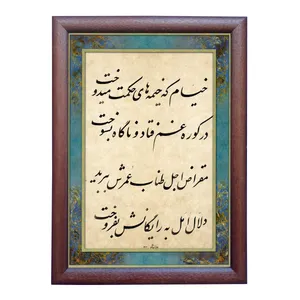 خیام که خیمه‌های حکمت میدوخت
در کوره غم فتاد و ناگاه بسوخت
مقراض اجل طناب عمرش ببرید
دلال امل به رایگانش بفروخت